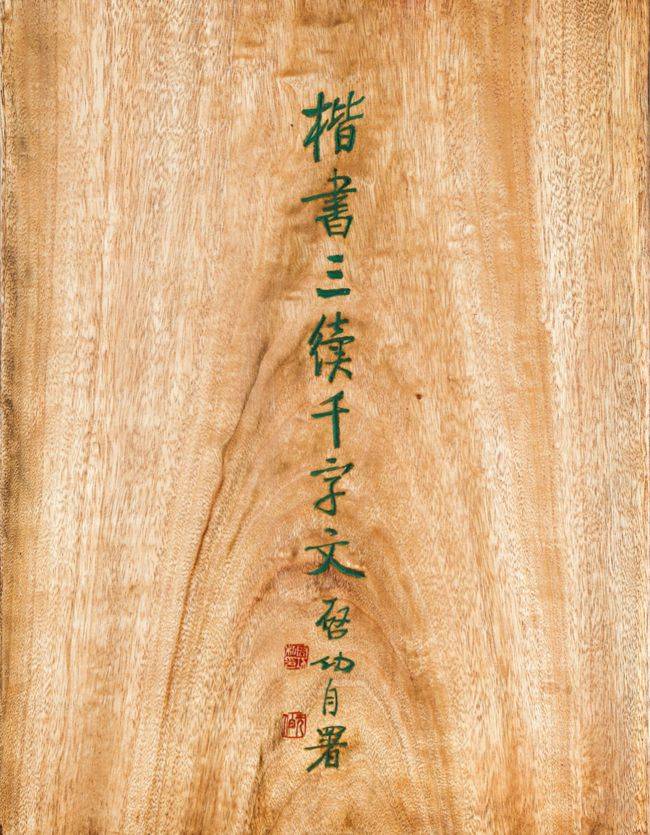 楷書三續千字文
啓功自署